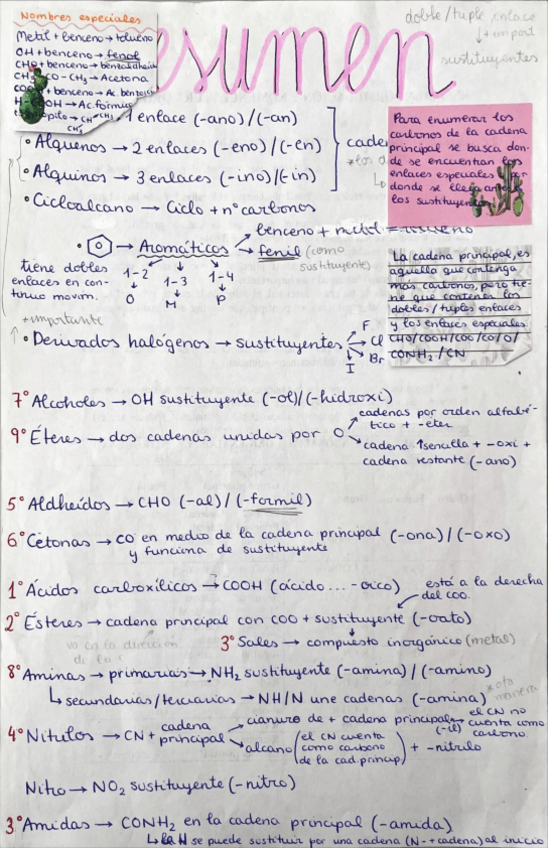 Nombres especiales
Metil + benceno → tolueno
OH + benceno → fenol
CHO + benceno →
CO - CH₃ → Acetona
+ benceno → Ac.
OH → Ac. fórmico
esumen
doble/tuple enlace
↓ + import
sustituyentes
1 enlace (-ano)/(-an)
• Alquenos → 2 enlaces (-eno)/(-en)
• Alquinos → 3 enlaces (-ino)/(-in)
Para enumerar los
carbonos de la cadena
principal se busca don-
de se encuentran los
enlaces especiales
donde se
los
• Cicloalcano → Ciclo + nº carbonos
• → Aromáticos
benceno + metil =
fenil (como
sustituyente)
tiene dobles
enlaces en con-
tinuo movim.
1-2 1-3 1-4
O M P
La cadena principal, es
aquella que contenga
más carbonos, pero tie-
ne que contener los
dobles/tuples enlaces
y los enlaces especiales:
CHO/COOH/COO/CO/O/
CONH₂/CN
+importante
• Derivados halógenos → sustituyentes
F
Cl
Br
I
7º Alcoholes → OH sustituyente (-ol)/(-hidroxi)
9º Éteres → dos cadenas unidas por O
cadenas por orden alfabé-
tico + -eter
cadena ↑sencilla + -oxi +
cadena restante (-ano)
5º Aldheídos → CHO (-al)/(-formil)
6º Cetonas → CO en medio de la cadena principal (-ona)/(-oxo)
y funciona de sustituyente
1º Ácidos carboxílicos → COOH (ácido ... -oico)
está a la derecha
del COO.
2º Ésteres → cadena principal con COO + sustituyente (-oato)
va en la dirección
de la
3º Sales → compuesto inorgánico (metal)
8º Aminas → primarias → NH₂ sustituyente (-amina)/(-amino)
↳ secundarias/terciarias → NH/N une cadenas (-amina)
manera
4º Nitulos → CN + cadena
principal
cianuro de + cadena principal (-il) → el CN no
cuenta como
carbono.
alcano (el CN cuenta
como carbono
de la cad. princip) + -nitrilo
Nitro → NO₂ sustituyente (-nitro)
3º Amidas → CONH₂ en la cadena principal (-amida)
↳ la H se puede sustituir por una cadena (N-+cadena) al inicio